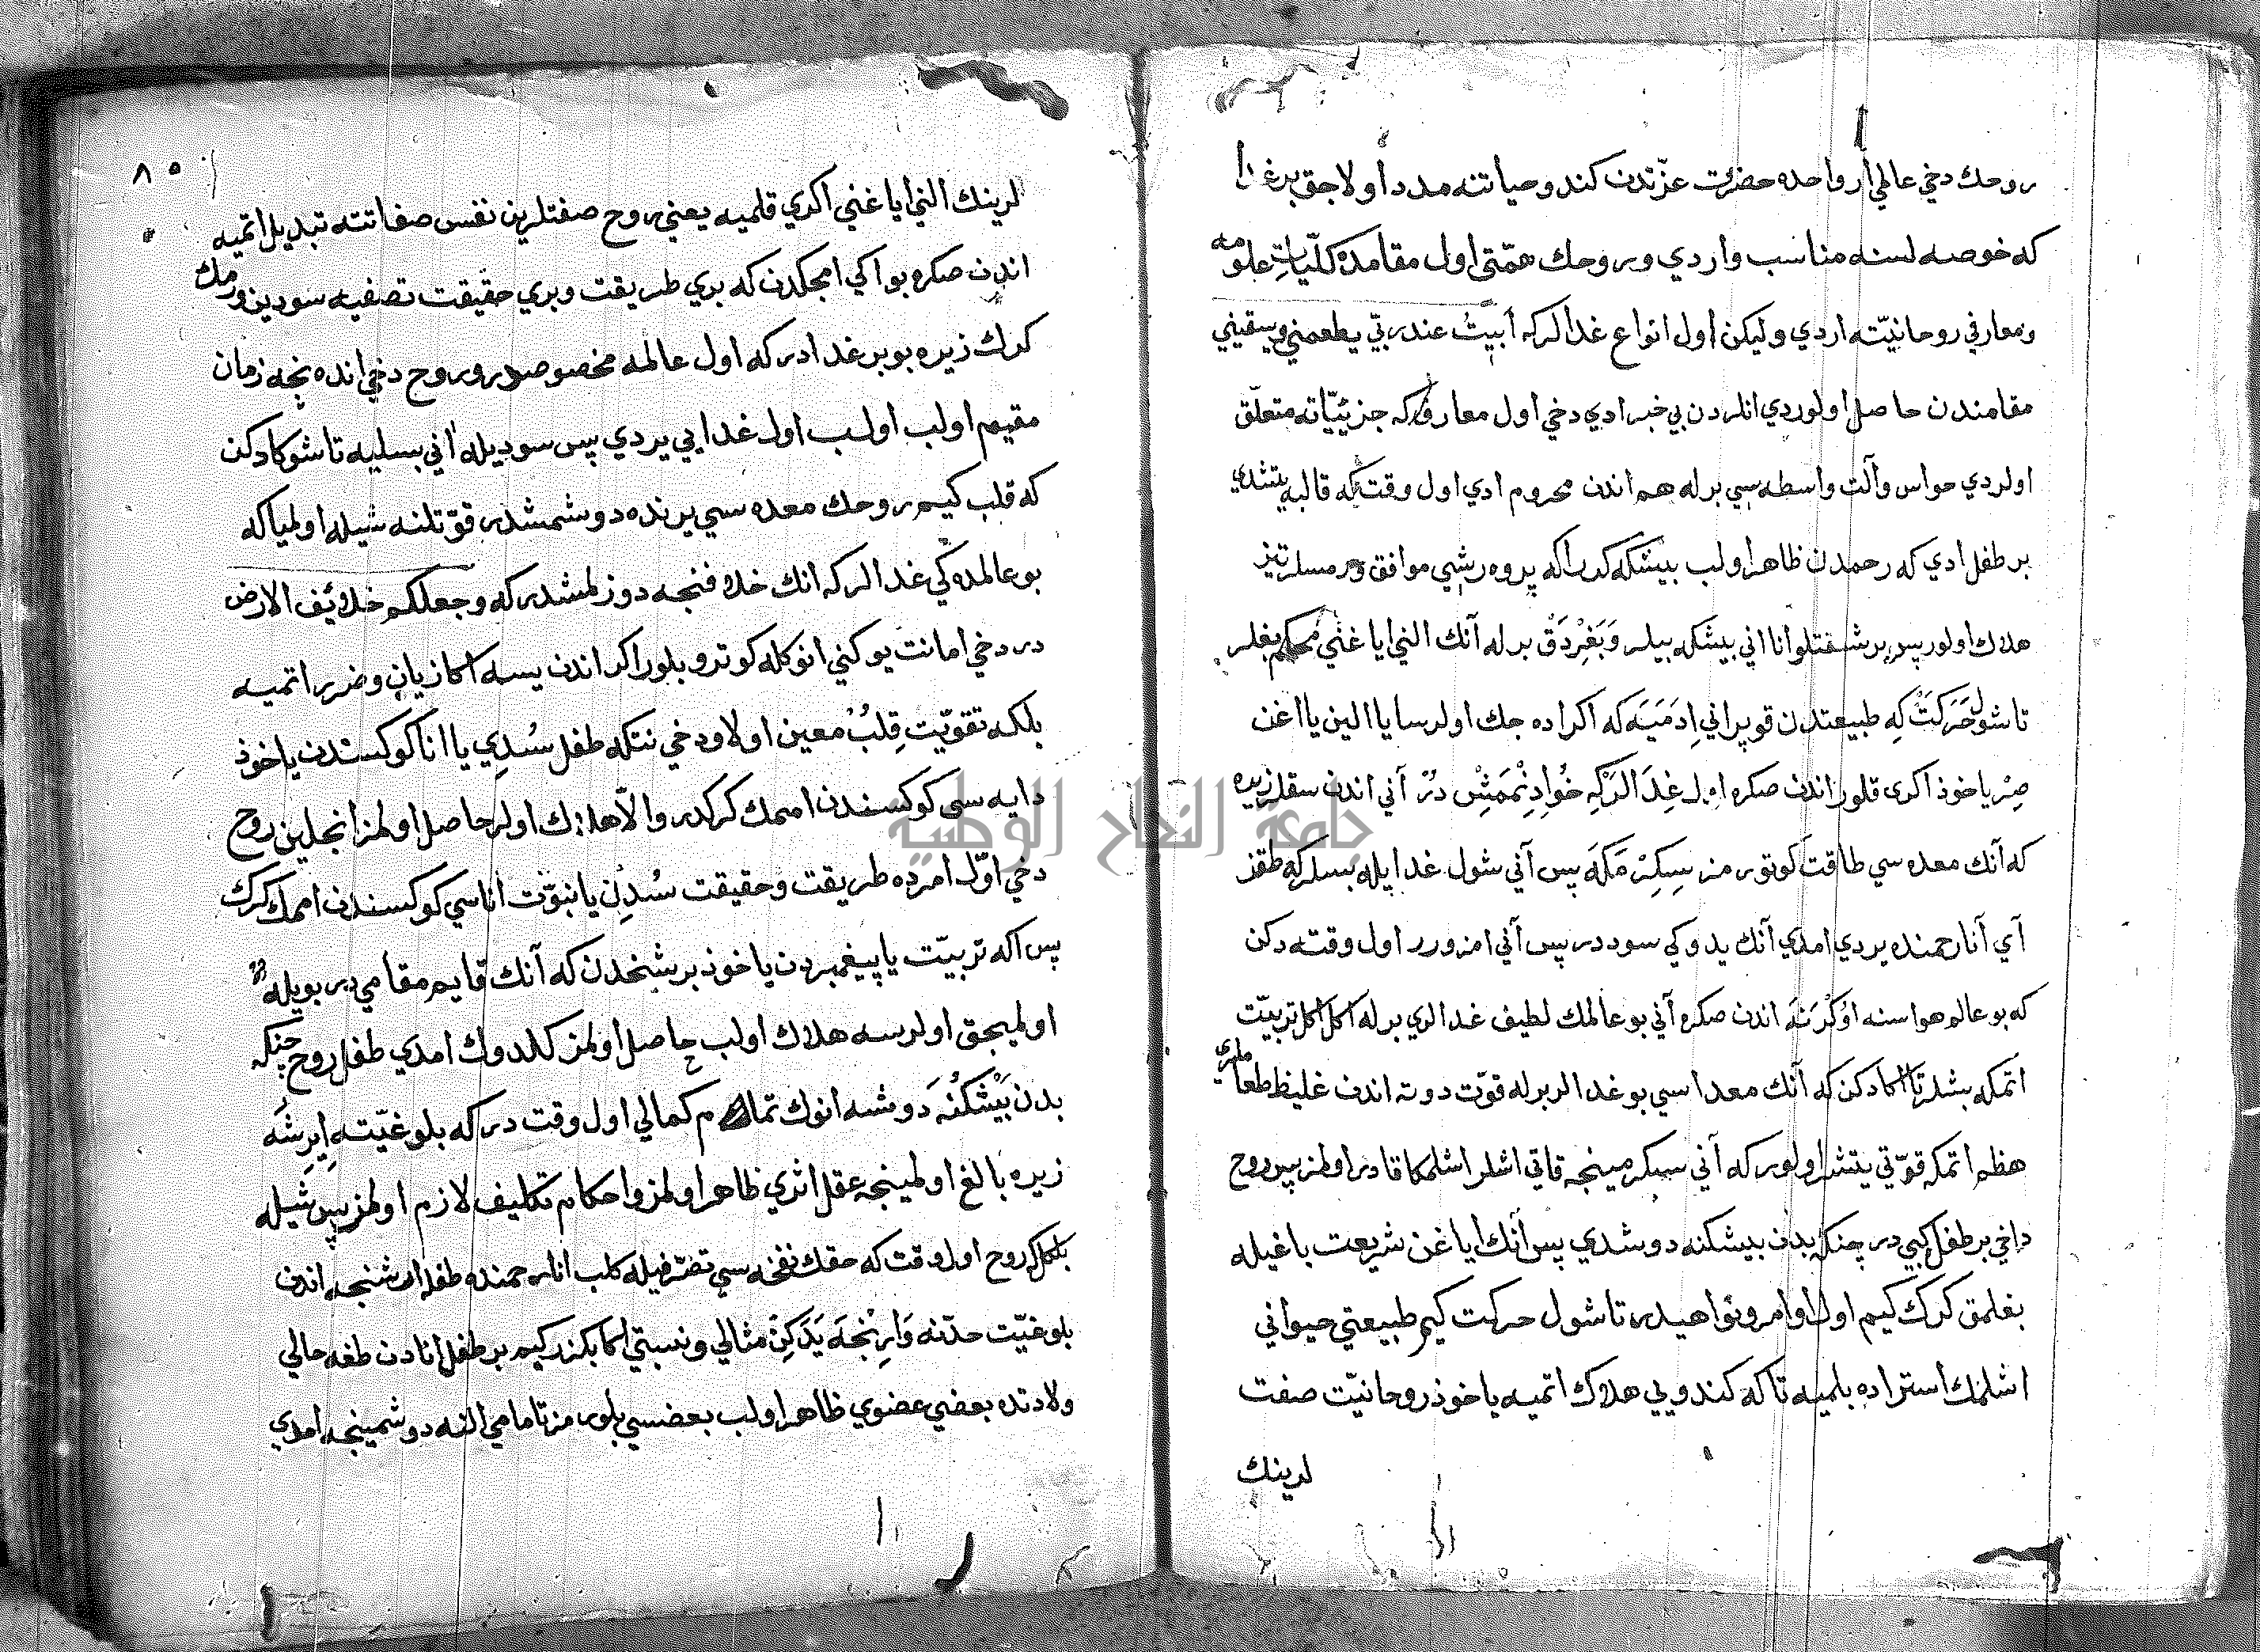 روحك دخي عالمي ارواحده حضرت عزّتدن كندو حياتنه مدد اولاجق بر غدا
كه خوصه لسنه مناسب واردي و روحك همّتي اول مقامده كلّيات علومه
ومعارفي روحانيّته اردي وليكن اول انواع غدالركه أبيتُ عند ربّي يطعمني ويسقيني
مقامندن حاصل اولوردي انلردن بي خبر ادي دخي اول معارف كه جزئيّاته متعلّق
اولردي حواس وآلت واسطه سي برله هم اندن محروم ادي اول وقت كه قالبه يتشدي
بر طفل ادي كه رحمدن ظاهر اولب بيشكه كدر اكه پروه رشي موافق ورمسلر تيز
هلاك اولور پس بر شفقتلو انا اني بيشكه بيلر وَبَغِرْدَقْ برله آنك النيٖ اياغني محكم بغلر
تا شول حَرَكَتْ كِه طبيعتدن قوپر اني اِدَمَيَه كه اكراده جك اولرسا يا الين يا اغن
صِرْ ياخوذ اكرى قلور اندن صكره اول غِدَالَرْكِه خُوادِنْمَمَشِْ دُرْ آني اندن سقلر زيره
كه آنك معده سي طاقت كوتورمز سِكِرْمَكَه پس آني شول غدايله بسلركه طقز
آي آنا رحمنده يردي امدي آنك يدوكي سوددر پس آني امزورر اول وقته دكن
كه بو عالم هواسنه اوُكْرَنَه اندن صكره آني بو عالمك لطيف غدالري برله اكل اكل تربيّت
اتمكه بشلر تا اكا دكن كه آنك معداسي بو غدالر برله قوّت دوته اندن غليظ طعاملري
هظم اتمكه قوّتي يتشر اولور كه آني سكرمينجه قاتي اشلر اشلمكا قادر اولمز پس روح
داخي بر طفل كبي در چنكه بدن بيشكنه دوشدي پس آنك اياغن شريعت باغيله
بغلمق كرك كيم اول اوامر ونواهيدر تا شول حركت كيم طبيعتي حيواني
اشلمك استراده بلميه تا كه كندويي هلاك اتميه ياخوذ روحانيّت صفت
لرينك
٨٥
لرينك النيٖ اياغني اكري قلميه يعني روح صفتلرين نفس صفاتنه تبديل اتميه
اندن صكره بو ايكي امجكدن كه بري طريقت وبري حقيقت تصفيه سودين ورمك
كرك زيره بو بر غدادر كه اول عالمه مخصوصدر و روح دخي انده نجه زمان
مقيم اولب اول غدايي يردي پس سوديله اني بسليه تا شوكا دكن
كه قلب كيم روحك معده سي يرنده دوشمشدر قوّتلنه شيله اولميا كه
بو عالمده كي غدالر كه انك خلافنجه دوزلمشدر كه وجعلكم خلائف الارض
در دخي امانت يوكني انوكله كوترو بلور اكر اندن يسه اكا زيان وضرر اتميه
بلكه تقويّت قِلبُ معين اولا ودخي نتكه طفل سُدِي يا انا كوكسندن ياخوذ
دايه سى كوكسندن اممك كركدر والاّ هلاك اولر حاصل اولمز انجلين روح
دخي اوّل امرده طريقت وحقيقت سُدِن يا نبوّت اناسي كوكسندن اممك كرك
پس اكه تربيّت يا پيغمبردن ياخوذ بر شيخدن كه آنك قايم مقامي در بويله
اولميجق اولرسه هلاك اولب حاصل اولمز كلدوك امدي طفل روح چنكه
بدن بَيْشكْنَه دَوشه انوك تمام كمالي اول وقت در كه بلوغيّته اِيرِشَه
زيره بالغ اولمينجه عقل اثري ظاهر اولمز واحكام تكليف لازم اولمز پس شيله
بلكل كه روح اول وقت كه حقك نفخه سي تصرّفيله كلب انا رحمنده طفله ارشنجه اندن
بلوغيّت حدّنه وَارِنْجَه يَدَكِنْ مثالي ونسبتي اكا بكزر كيم بر طفل انادن طغه حالي
ولادتده بعضي عضوي ظاهر اولب بعضسي بلورمز تامامي النه دوشمينجه امدي
جامعة النجاح الوطنية